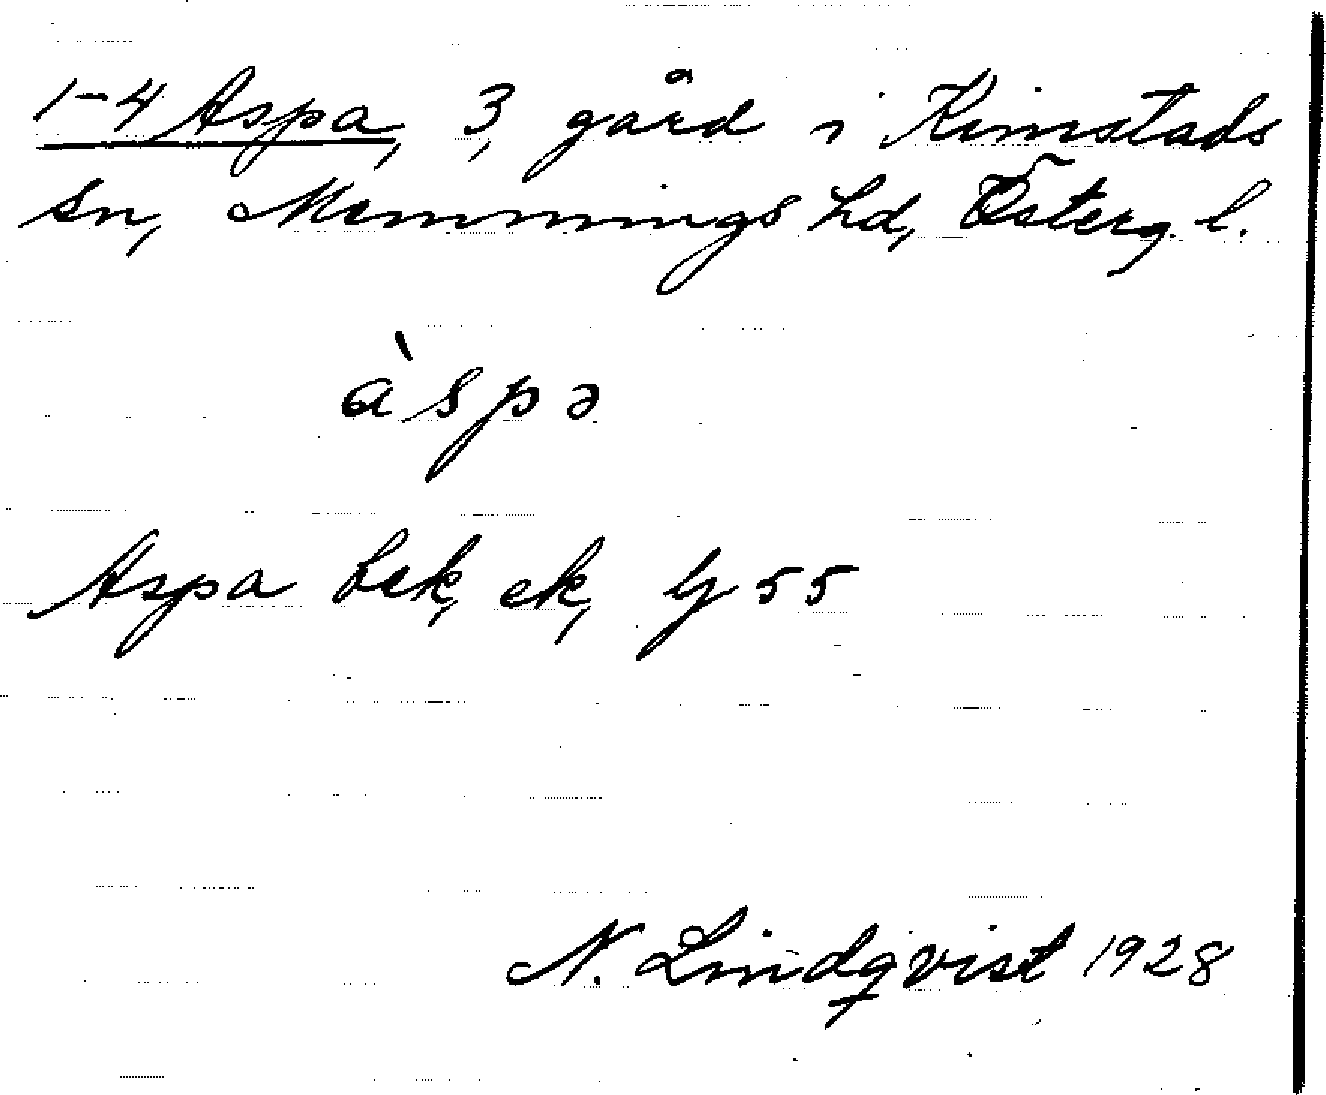 1-4 Aspa, 3, gård i Kimstads
sn, Memmings hd, Österg. l.
àspə
Aspa bek, ek, Gj 55
N. Lindqvist 1928